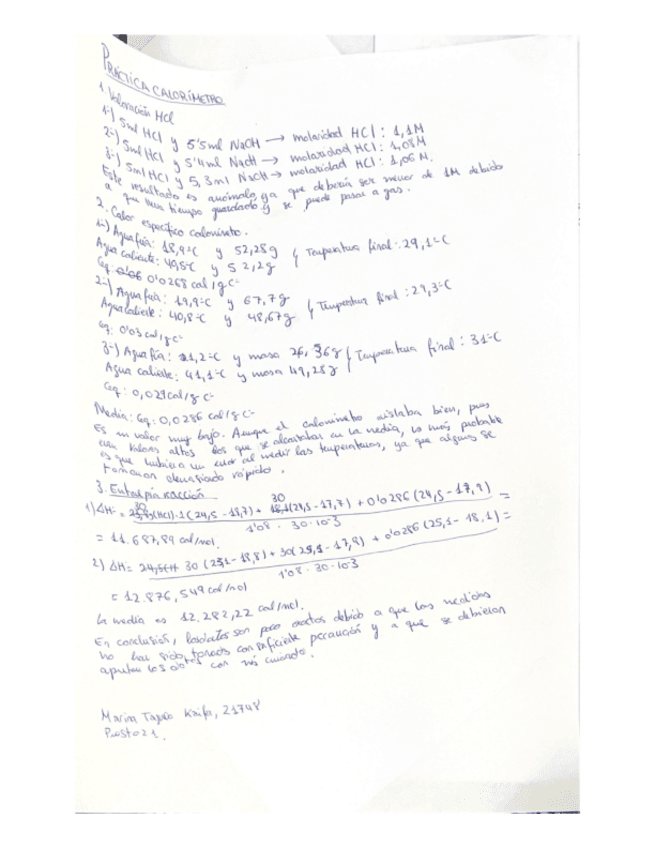 PRÁCTICA CALORÍMETRO
1. Valoración HCl
1-) 5ml HCl y 5'5ml NaOH → molaridad HCl: 1,1M
2-) 5ml HCl y 5'4ml NaOH → molaridad HCl: 1,08M
3-) 5ml HCl y 5,3ml NaOH → molaridad HCl: 1,06M.
Este resultado es anómalo, ya que debería ser menor de 1M debido
a que lleva tiempo guardado y se puede pasar a gas.
2. Calor específico calorímetro.
1-) Agua fría: 18,9ºC y 52,28g } Temperatura final: 29,1ºC
Agua caliente: 40,8ºC y 52,2g
Ceq: 0'0268 cal/gCº
2-) Agua fría: 19,9ºC y 67,7g } Temperatura final: 29,3ºC
Agua caliente: 40,8ºC y 48,67g
Ceq: 0'03 cal/gCº
3-) Agua fría: 21,2ºC y masa 36g } Temperatura final: 31ºC
Agua caliente: 41,1ºC y masa 49,28g
Ceq: 0,029 cal/gCº
Media: Ceq: 0,0286 cal/gCº
Es un valor muy bajo. Aunque el calorímetro aislaba bien, pues
eran valores altos los que se alcanzaban en la media, lo más probable
es que hubiera un error al medir las temperaturas, ya que algunas se
tomaron demasiado rápido.
3. Entalpía reacción
1) ΔH = 30 (HCl)·1(24,5 - 18,7) + 30 (24,5 - 17,7) + 0'0286 (24,5 - 17,9) =
1'08 · 30·10-3
= 11.687,89 cal/mol.
2) ΔH = 30 (25,1 - 18,8) + 30(25,1 - 17,9) + 0'0286 (25,1 - 18,1) =
1'08 · 30·10-3
= 12.876,549 cal/mol
La media es 12.282,22 cal/mol.
En conclusión, los datos son poco exactos debido a que las medidas
no han sido tomadas con suficiente precaución y a que se debieron
apuntar los datos con más cuidado.
Marina Kaifa, 21748
Puesto 21.